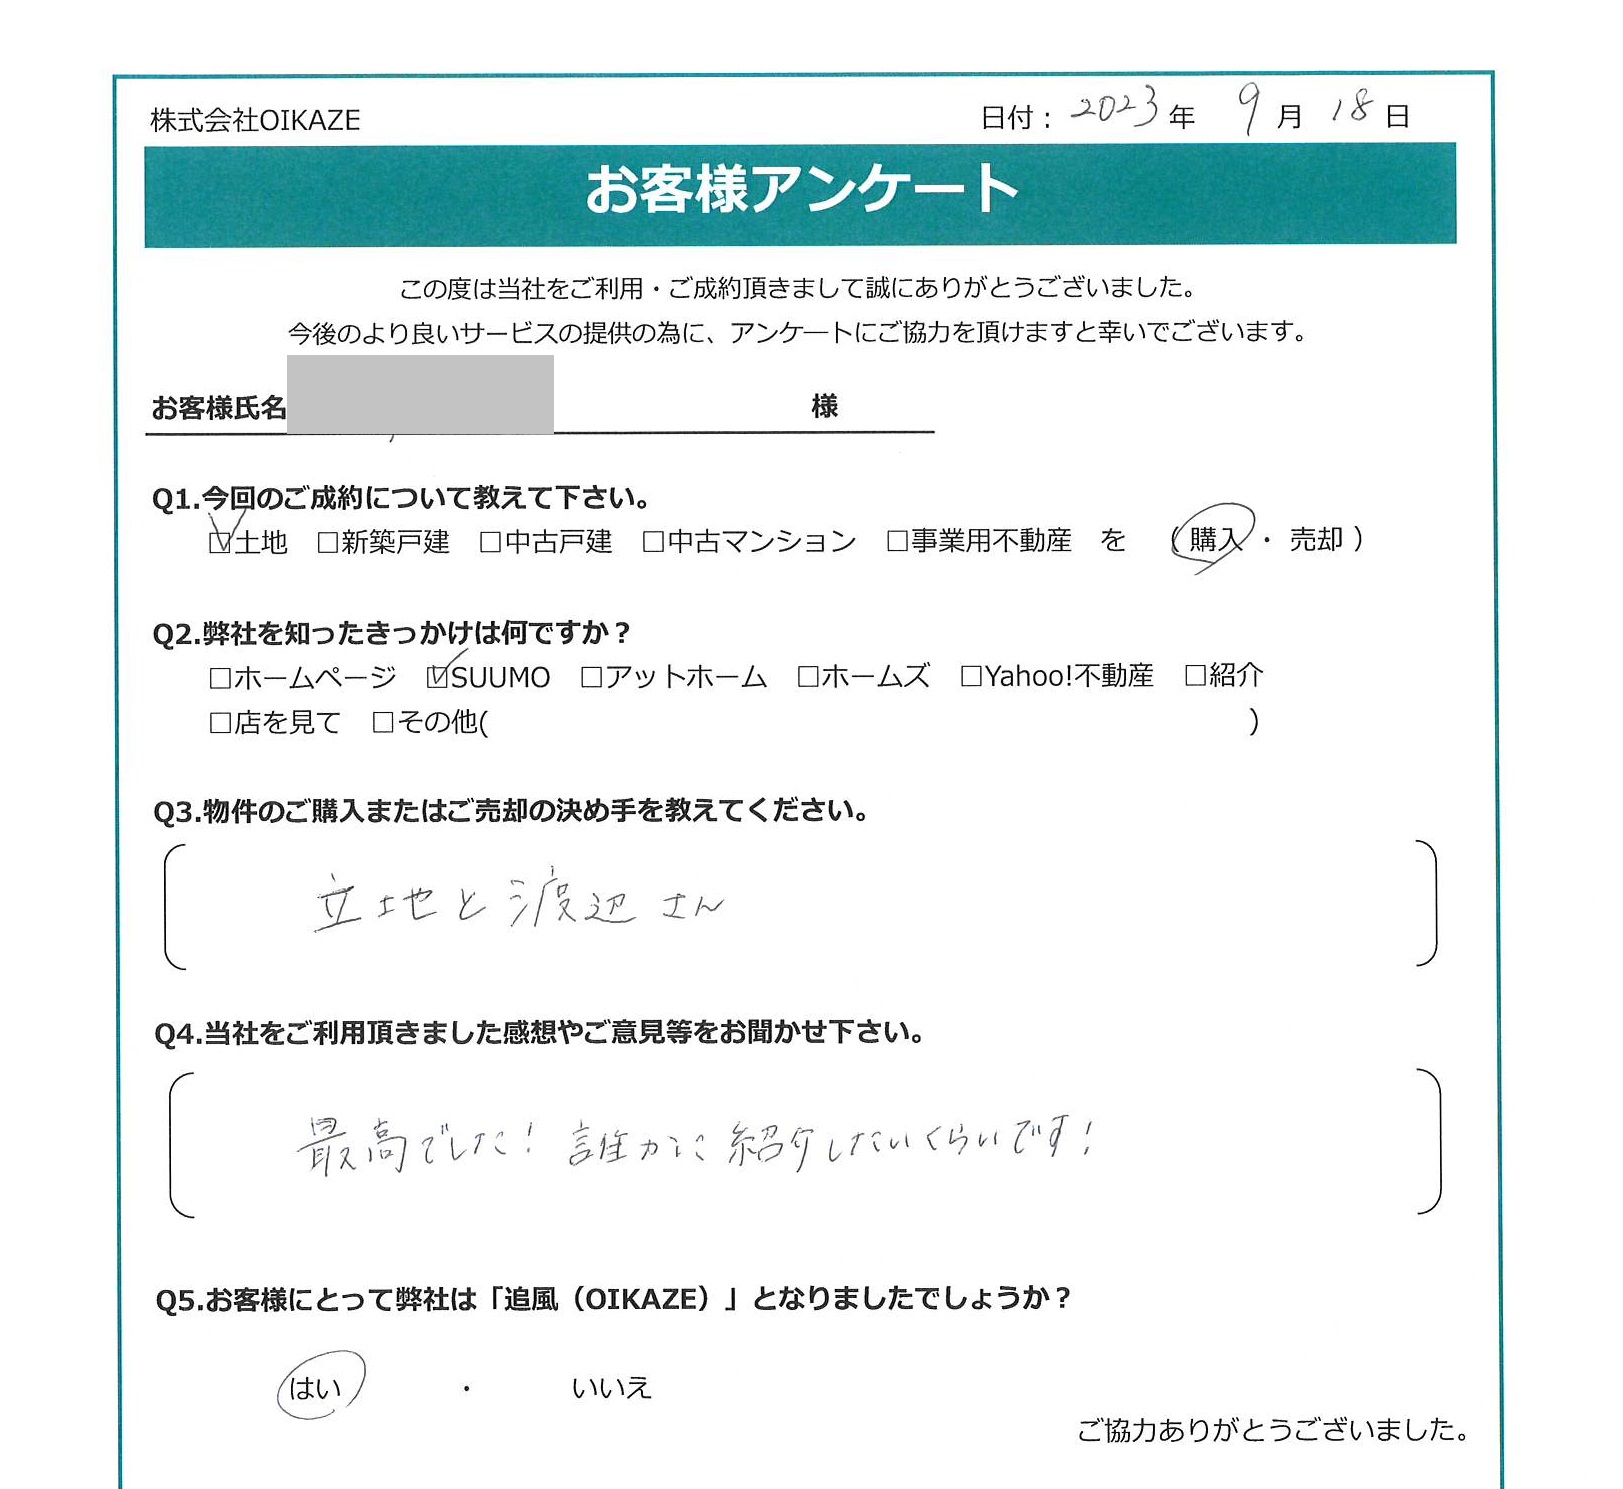 株式会社OIKAZE 日付：2023年 9月 18日
お客様アンケート
この度は当社をご利用・ご成約頂きまして誠にありがとうございました。
今後のより良いサービスの提供の為に、アンケートにご協力を頂けますと幸いでございます。
お客様氏名 様
Q1.今回のご成約について教えて下さい。
☑土地 □新築戸建 □中古戸建 □中古マンション □事業用不動産 を （購入・売却）
Q2.弊社を知ったきっかけは何ですか？
□ホームページ ☑SUUMO □アットホーム □ホームズ □Yahoo!不動産 □紹介
□店を見て □その他( )
Q3.物件のご購入またはご売却の決め手を教えてください。
立地と渡辺さん
Q4.当社をご利用頂きました感想やご意見等をお聞かせ下さい。
最高でした！誰かに紹介したいくらいです！
Q5.お客様にとって弊社は「追風（OIKAZE）」となりましたでしょうか？
はい ・ いいえ
ご協力ありがとうございました。